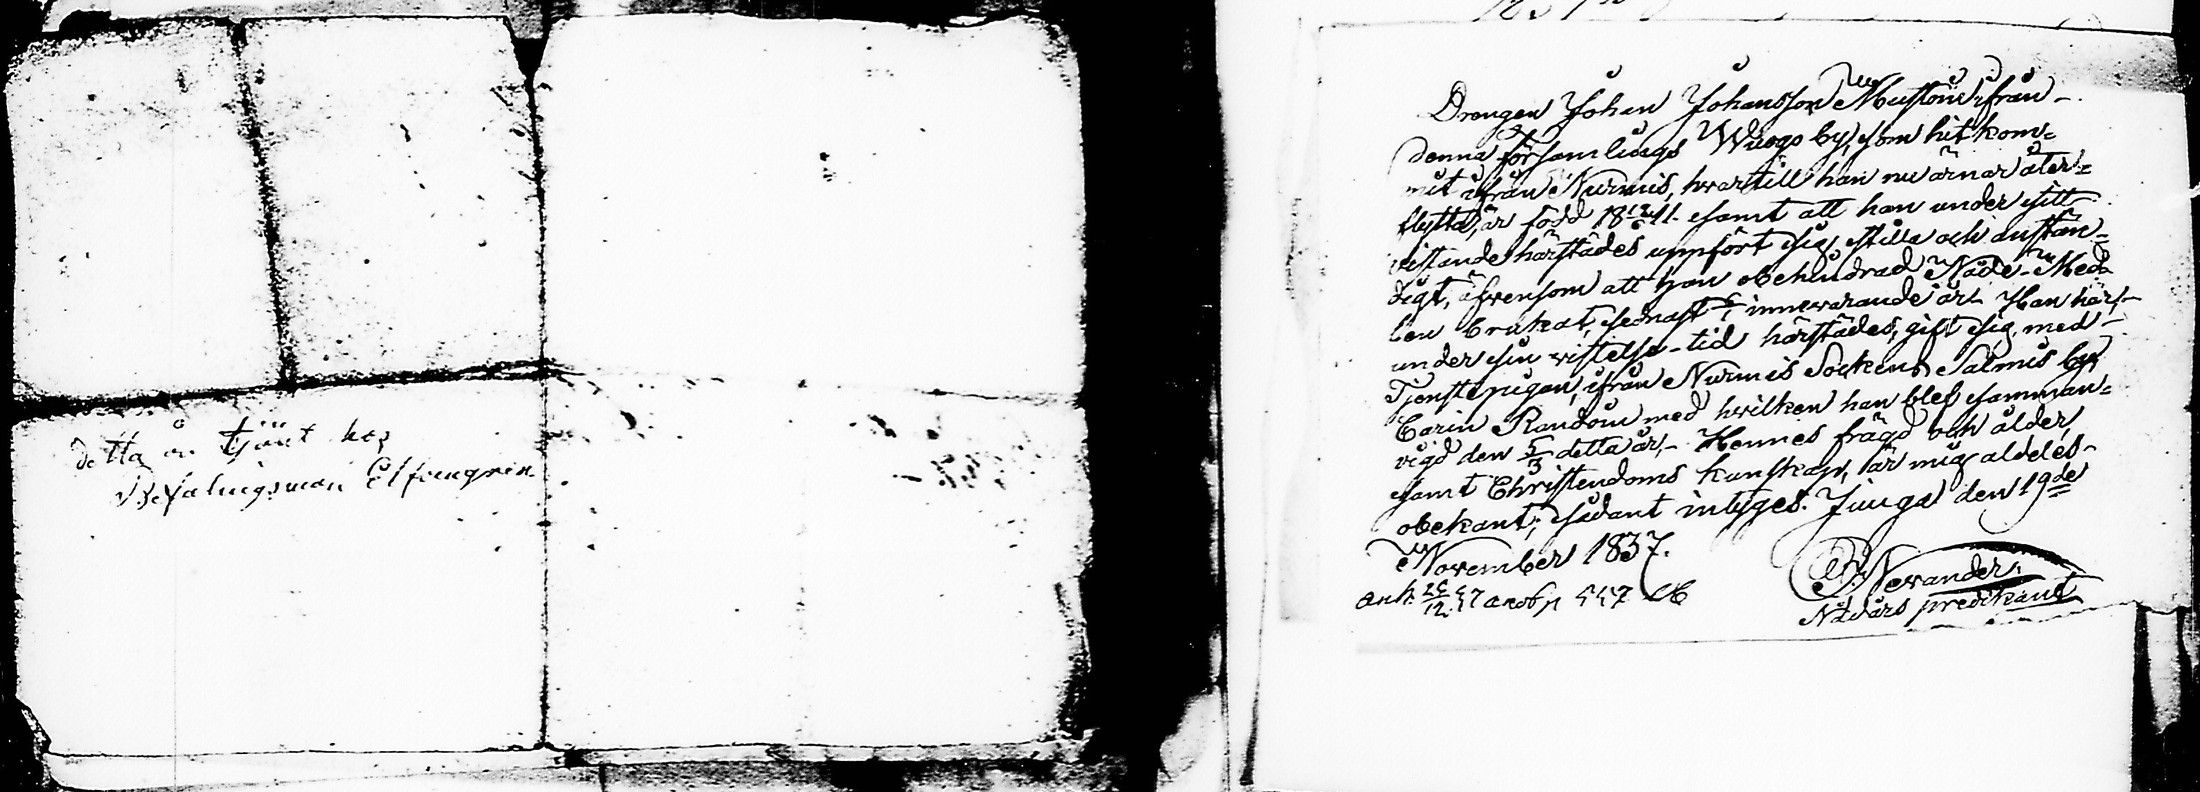 detta år tjänt hos
Befalningsman Elfvengren
Drengen Johan Johansson Mustoin ifrån
denna församlings Wuogo by, som hit kom=
mit ifrån Nurmis, hvartill han nu ärnar åter=
flytta, är född 18 11. samt att han under sitt
vistande härstädes uppfört sig stilla och anstän=
digt, äfvensom att han obehindrad Nåde-Med-
len brukat, sednast innevarande år. Han har,
under sin vistelse-tid härstädes, gift sig med
Tjenstepigan, ifrån Nurmis Sockens Salmis by,
Carin Randoin med hvilken han blef samman=
vigd den 5/3 detta år, - Hennes frägd och ålder,
samt Christendoms kunskap, är mig aldeles
obekant; sådant intyges. Jiuga den 19de
November 1837.
Newander
Nådårs predikant
ank. 26/12 37